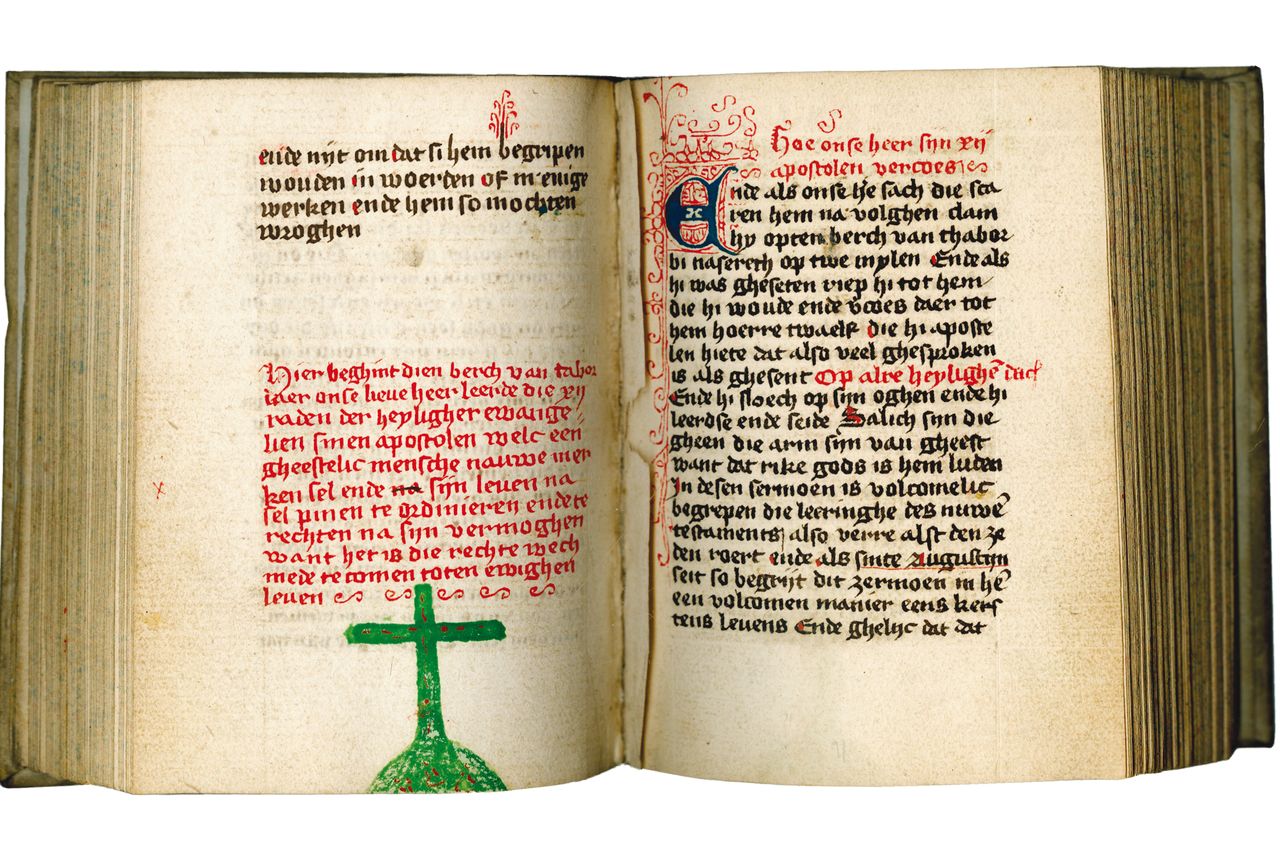 ende nyt om dat si hem begripen
wouden in woerden of in enige
werken ende hem so mochten
wroghen
Hier beghint dien berch van tabor
daer onse lieue heer leerde die xij
raden der heyligher ewange
lien sinen apostolen welc een
gheestelic mensche nauwe mer
ken sel ende na sijn leven na
sel pinen te ordinieren ende te
rechten na sijn vermoghen
want het is die rechte wech
mede te comen toten ewighen
leven
Hoe onse heer sijn xij
apostolen vercoes
Ende als onse he sach die sca
ren hem na volghen clam
hy opten berch van thabor
bi nasereth op twe mylen Ende als
hi was gheseten riep hi tot hem
die hi woude ende vcoes daer tot
hem hoerre twaelf die hi aposte
len hiete dat also veel ghesproken
is als ghesent Op alre heylighē dach
Ende hi sloech op sijn oghen ende hi
leerdse ende seide Salich sijn die
gheen die arm sijn van gheest
want dat rike gods is hem luden
In desen sermoen is volcomelic
begrepen die leeringhe des nuwē
testaments also verre alst den ze
den roert ende als sinte Augustijn
seit so begrijt dit zermoen in hē
een volcomen manier eens kers
tens levens Ende ghelijc dat dat